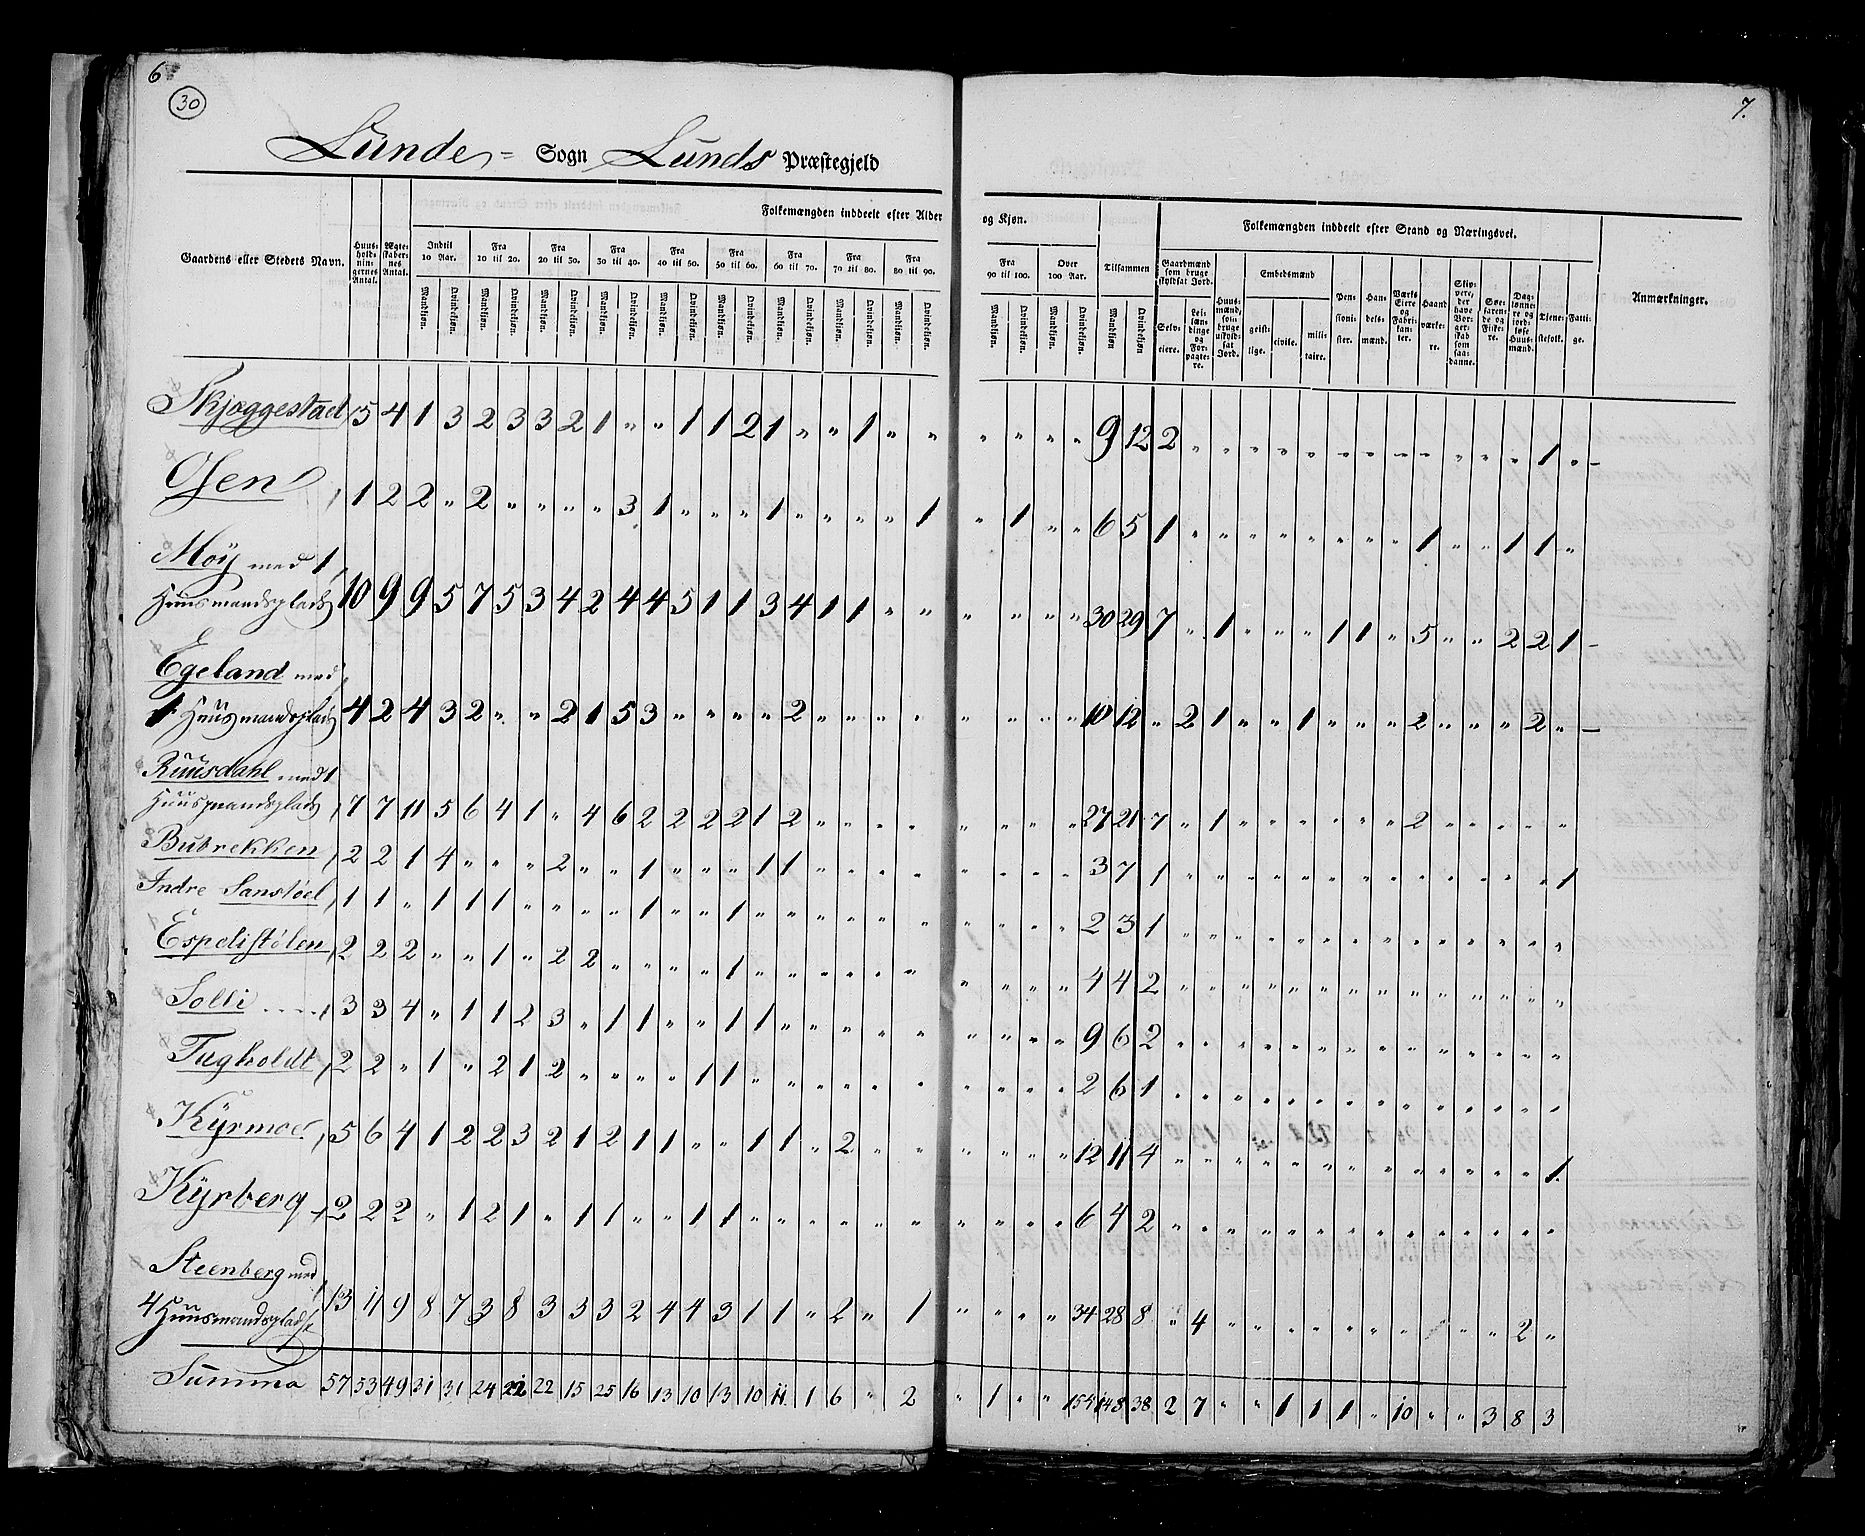 6
30
7.
Lunde = Sogn Lunds Præstegjeld
Gaardens eller Stedets Navn.
Huus-holdnin-gernes Antal.
Ægte-skaber-nes Antal.
Folkemængden inddeelt efter Alder og Kjøn.
Indtil 10 Aar. Fra 10 til 20. Fra 20 til 30. Fra 30 til 40. Fra 40 til 50. Fra 50 til 60. Fra 60 til 70. Fra 70 til 80. Fra 80 til 90. Fra 90 til 100. Over 100 Aar. Tilsammen
Mandkjøn. Qvindekjøn. Mandkjøn. Qvindekjøn. Mandkjøn. Qvindekjøn. Mandkjøn. Qvindekjøn. Mandkjøn. Qvindekjøn. Mandkjøn. Qvindekjøn. Mandkjøn. Qvindekjøn. Mandkjøn. Qvindekjøn. Mandkjøn. Qvindekjøn. Mandkjøn. Qvindekjøn. Mandkjøn. Qvindekjøn. Mandkjøn Qvindekjøn
Folkemængden inddeelt efter Stand og Næringsvei.
Gaardmænd som bruge skyldsat Jord.
Selv-eiere.
Lei-læn-dinge og For-pagte-re.
Huus-mænd, som bruge uskyld-sat Jord.
Embedsmænd
geist-lige. civile. mili-taire.
Pen-sioni-ster.
Han-dels-mænd.
Værks Eiere og Fabri-kan-ter.
Haand værke-re.
Søe-farende og Fiske-re.
Dag-lønne-re og jord-løse Huus-mænd.
Tjene-stefolk.
Fatti-ge.
Anmærkninger.
Skjæggestad, 5 4 1 3 2 3 3 2 1 " " 1 1 2 1 " " 1 " " " " " " 9 12 2 " " " " " " " " " " " " 1 " –
Osen, 1 2 2 " 2 " " " " 3 1 " " " 1 " " " " 1 " 1 " " 6 5 1 " " " " " " " " 1 " " 1 1 "
Moÿ med 1
Huusmandsplads, 10 9 9 5 7 5 3 4 2 4 4 5 1 1 3 4 1 1 " " " " " " 30 29 7 " 1 " " " 1 1 " 5 " " 2 2 1 –
Egeland med
1 Huusmandsplads 4 2 4 3 2 " " 2 1 5 3 " " " " 2 " " " " " " " " 10 12 " 2 1 " " 1 " " " 2 " " " 2 " –
Ruusdahl med 1
Huusmandsplads, 7 7 11 5 6 4 1 " 4 6 2 2 2 2 1 2 " " " " " " " " 27 21 7 " 1 " " " " " " 2 " " " " "
Bubrekken, 2 2 1 4 " " " 2 " " 1 " " " 1 1 " " " " " " " " 3 7 1 " " " " " " " " " " " " " 1
Indre Sanstöel, 1 1 " 1 1 1 " " " " 1 " " 1 " " " " " " " " " " 2 3 1 " " " " " " " " " " " " " "
Espelistölen, 2 2 2 " " 1 " 2 2 " " " " 1 " " " " " " " " " " 4 4 2 " " " " " " " " " " " " " "
Solli . . . . , 3 3 4 " 1 1 2 3 " 1 1 " " 1 1 " " " " " " " " " 9 6 2 " " " " " " " " " " " " " "
Tugholdt, 2 2 " 1 " 2 1 2 " " " " 1 1 " " " " " " " " " " 2 6 1 " " " " " " " " " " " " " "
Kÿrmoe, 5 6 4 1 2 2 3 2 1 2 1 1 " " 1 1 " 2 " " " " " " 12 11 4 " " " " " " " " " " " " " 1.
Kÿrberg, 2 2 2 " 1 2 1 " 1 1 " " 1 1 " " " " " " " " " " 6 4 2 " " " " " " " " " " " " " "
Steenberg med
4 Huusmandspladse, 13 11 9 8 7 3 8 3 3 3 2 4 4 3 1 1 " 2 " 1 " " " " 34 28 8 " 4 " " " " " " " " " 2 "
Summa 57 53 49 31 31 24 22 22 15 25 16 13 10 13 10 11. 1 6 " 2 " 1 " " 154 148 38 2 7 " " 1 1 1 " 10 " " 3 8 3